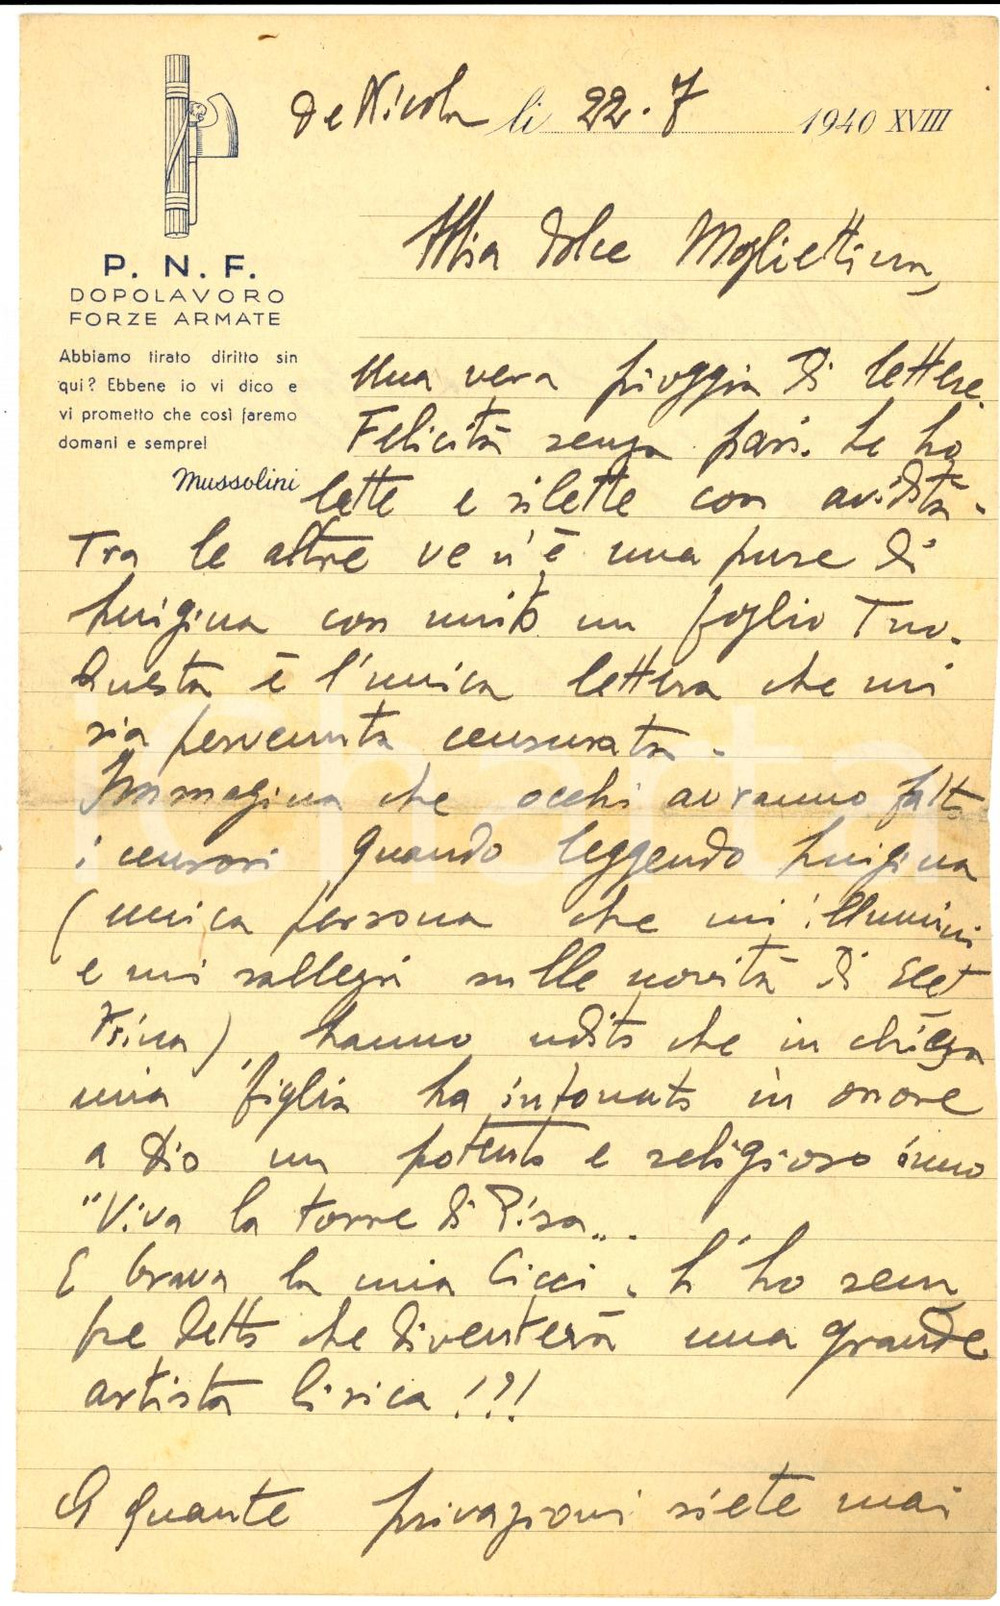 De Nicola li 22.7 1940 XVIII
P. N. F.
DOPOLAVORO
FORZE ARMATE
Abbiamo tirato diritto sin
qui? Ebbene io vi dico e
vi prometto che così faremo
domani e sempre!
Mussolini
Mia dolce Mogliettina,
Una vera pioggia di lettere.
Felicità senza pari. Le ho
lette e rilette con avidità.
Tra le altre ve n'è una pure di
Luigina con unito un foglio Tuo.
Questa è l'unica lettera che mi
sia pervenuta censurata.
Immagina che occhi avranno fatto
i censori quando leggendo Luigina
(unica persona che mi illumini
e mi rallegri sulle novità di Elet
trina) hanno udito che in chiesa
mia figlia ha intonato in onore
a Dio un potente e religioso inno
"Viva la torre di Pisa„.
E brava la mia Cicci. L'ho sem
pre detto che diventerà una grande
artista lirica!?!
A quante privazioni siete mai